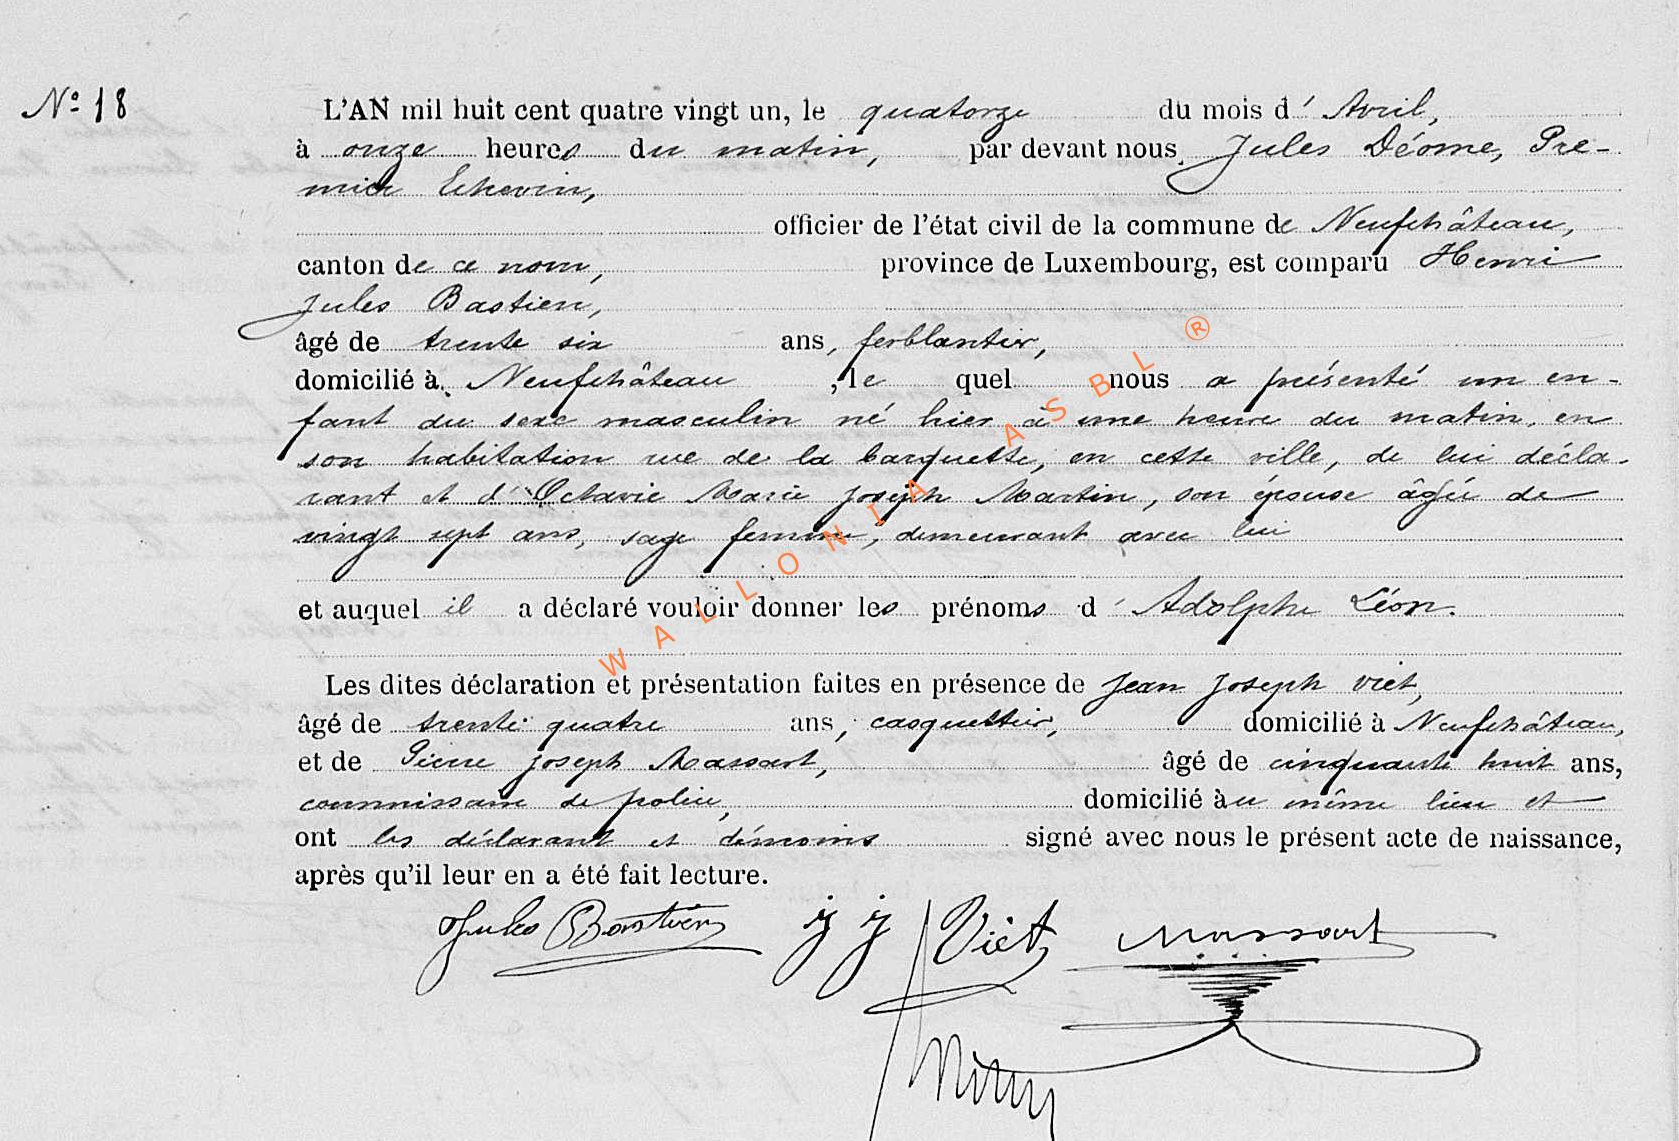 Nº 18
L'AN mil huit cent quatre vingt un, le quatorze du mois d' Avril,
à onze heures du matin, par devant nous Jules Déome, Pre-
mier Echevin,
officier de l'état civil de la commune de Neufchâteau,
canton de ce nom, province de Luxembourg, est comparu Henri
Jules Bastien,
âgé de trente six ans, ferblantier,
domicilié à Neufchâteau, le quel nous a présenté un en-
fant du sexe masculin né hier à une heure du matin, en
son habitation rue de la barquette, en cette ville, de lui décla-
rant et d'Octavie Marie Joseph Martin, son épouse âgée de
vingt sept ans, sage femme, demeurant avec lui
et auquel il a déclaré vouloir donner les prénoms d' Adolphe Léon.
Les dites déclaration et présentation faites en présence de Jean Joseph Viet,
âgé de trente quatre ans, casquettier, domicilié à Neufchâteau,
et de Pierre Joseph Massart, âgé de cinquante huit ans,
commissaire de police, domicilié àu même lieu et
ont les déclarant et témoins signé avec nous le présent acte de naissance,
après qu'il leur en a été fait lecture.
Jules Bastien J J Viét Massart
WALLONIA ASBL ®